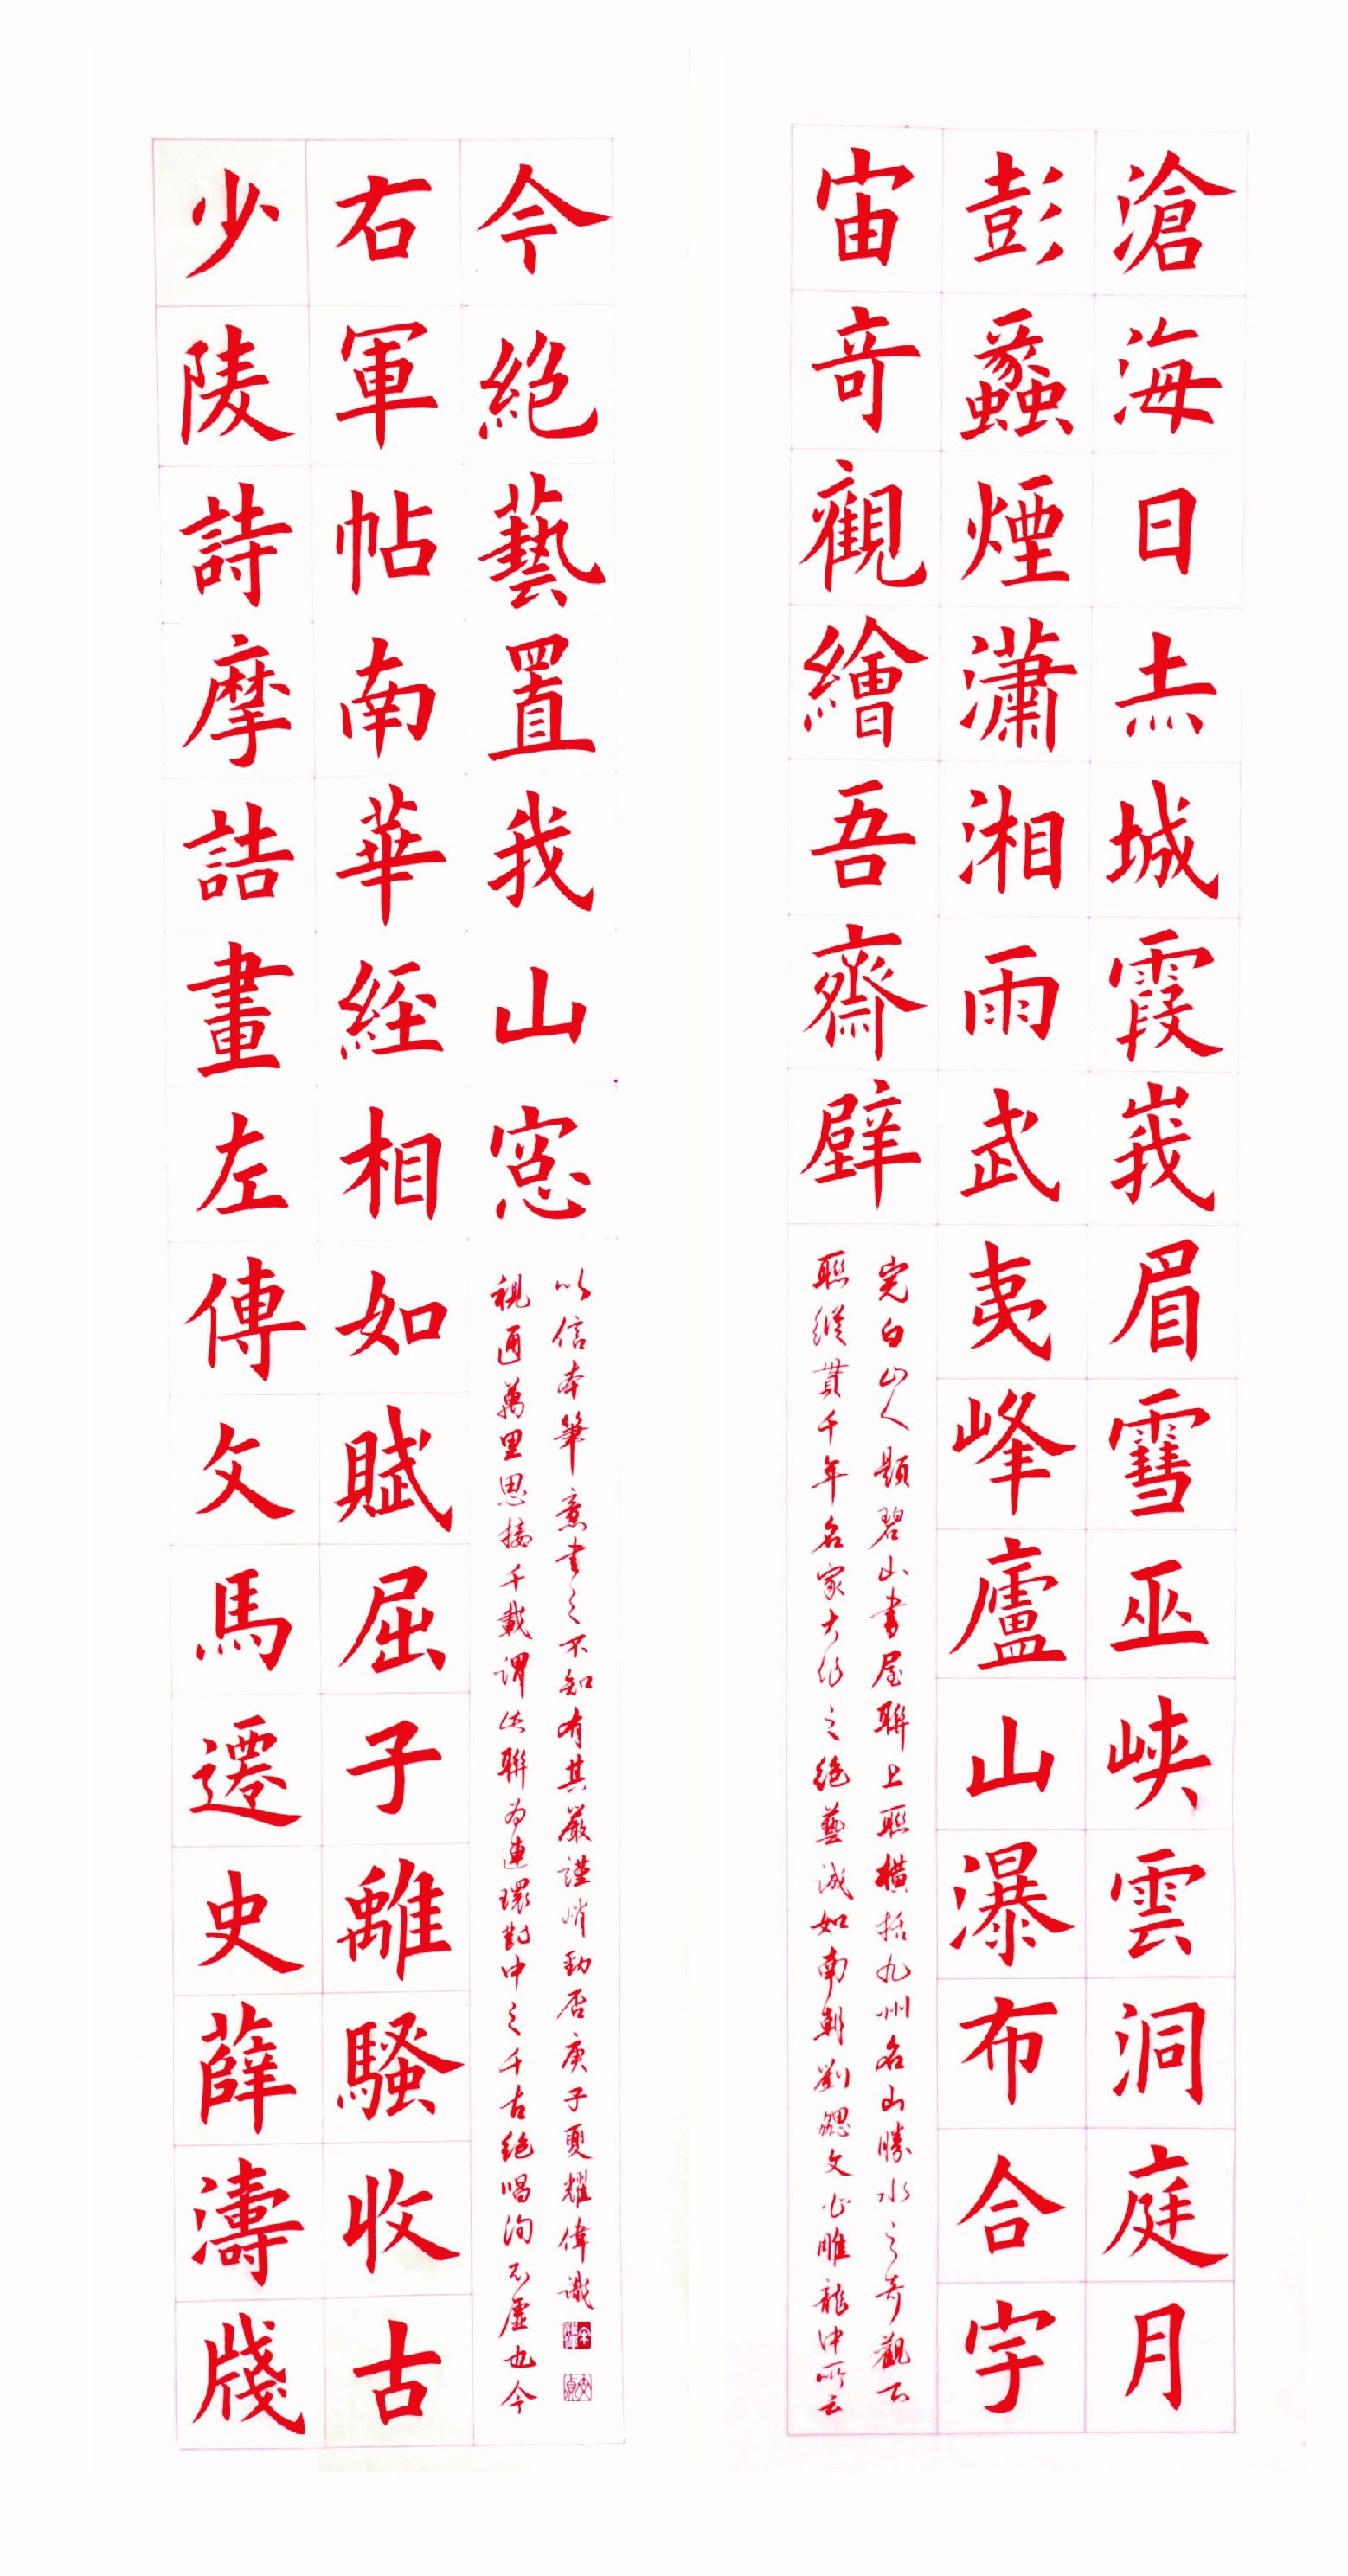 滄海日赤城霞峩眉雪巫峽雲洞庭月
彭蠡煙瀟湘雨武夷峰廬山瀑布合宇
宙奇觀繪吾齋壁
完白山人題碧山書屋聯上聯橫括九州名山勝水之奇觀下
聯縱貫千年名家大作之絕藝誠如南朝劉勰文心雕龍中所云
少陵詩摩詰畫左傳文馬遷史薛濤牋
右軍帖南華經相如賦屈子離騷收古
今絕藝置我山窓
視通萬里思接千載謂此聯為連環對中之千古絕唱洵无虛也今
以信本筆意書之不知有其嚴謹峭勁否庚子夏耀偉識